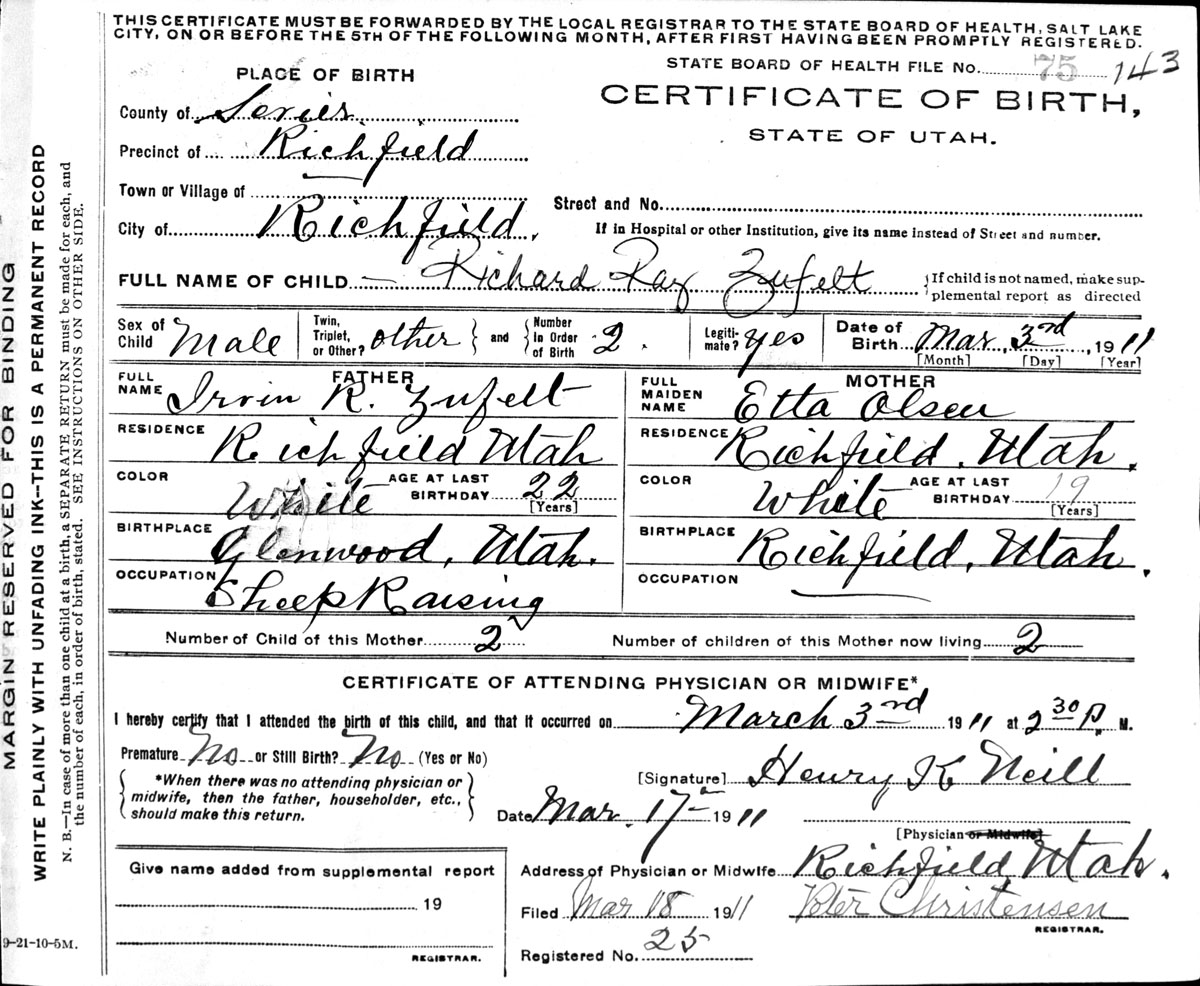 THIS CERTIFICATE MUST BE FORWARDED BY THE LOCAL REGISTRAR TO THE STATE BOARD OF HEALTH, SALT LAKE
CITY, ON OR BEFORE THE 5TH OF THE FOLLOWING MONTH, AFTER FIRST HAVING BEEN PROMPTLY REGISTERED.
STATE BOARD OF HEALTH FILE NO. 75 143
PLACE OF BIRTH
CERTIFICATE OF BIRTH,
STATE OF UTAH.
County of Sevier
Precinct of Richfield
Town or Village of
Street and No.
City of Richfield.
If in Hospital or other Institution, give its name instead of Street and number.
FULL NAME OF CHILD — Richard Ray Zufelt
{If child is not named, make sup-
plemental report as directed
Sex of Child Male
Twin, Triplet, or Other? other } and { Number In Order of Birth 2.
Legiti-mate? yes
Date of Birth Mar. 3rd, 1911
[Month] [Day] [Year]
FATHER
FULL NAME Irvin R. Zufelt
RESIDENCE Richfield Utah
COLOR White AGE AT LAST BIRTHDAY 22
[Years]
BIRTHPLACE Glenwood, Utah.
OCCUPATION Sheep Raising
MOTHER
FULL MAIDEN NAME Etta Olsen
RESIDENCE Richfield, Utah.
COLOR White AGE AT LAST BIRTHDAY 19
[Years]
BIRTHPLACE Richfield, Utah.
OCCUPATION
Number of Child of this Mother 2 Number of children of this Mother now living 2
CERTIFICATE OF ATTENDING PHYSICIAN OR MIDWIFE*
I hereby certify that I attended the birth of this child, and that it occurred on March 3rd 1911 at 2 30 P. M.
Premature No or Still Birth? No (Yes or No)
{*When there was no attending physician or
midwife, then the father, householder, etc.,
should make this return.}
[Signature] Henry K Neill
Date Mar. 17 1911
[Physician or Midwife]
Give name added from supplemental report
19
REGISTRAR.
Address of Physician or Midwife Richfield, Utah.
Filed Mar 18 1911 Peter Christensen
REGISTRAR.
Registered No. 25
MARGIN RESERVED FOR BINDING
WRITE PLAINLY WITH UNFADING INK--THIS IS A PERMANENT RECORD
N. B.—In case of more than one child at birth, a SEPARATE RETURN must be made for each, and
the number of each, in order of birth, stated. SEE INSTRUCTIONS ON OTHER SIDE.
9-21-10-5M.